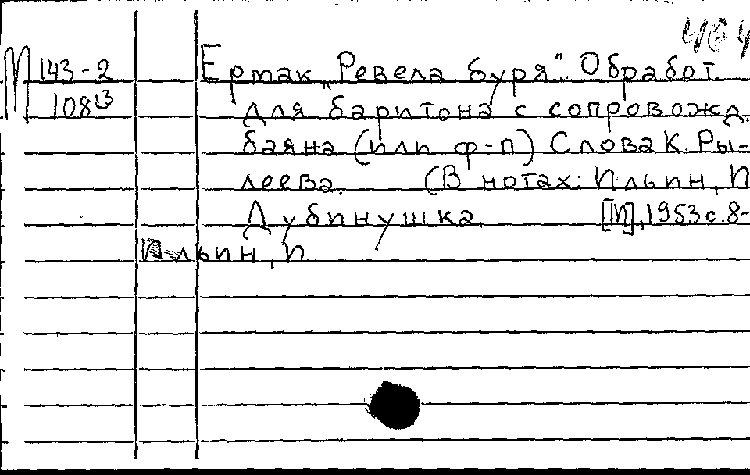 464
М 143-2 Ермак „Ревела буря". Обработ.
108¹³ для баритона с сопровожд.
баяна (или ф-п) Слова К. Ры-
леева. (В нотах: Ильин, И
Дубинушка [М], 1953 с. 8-
Ильин, И